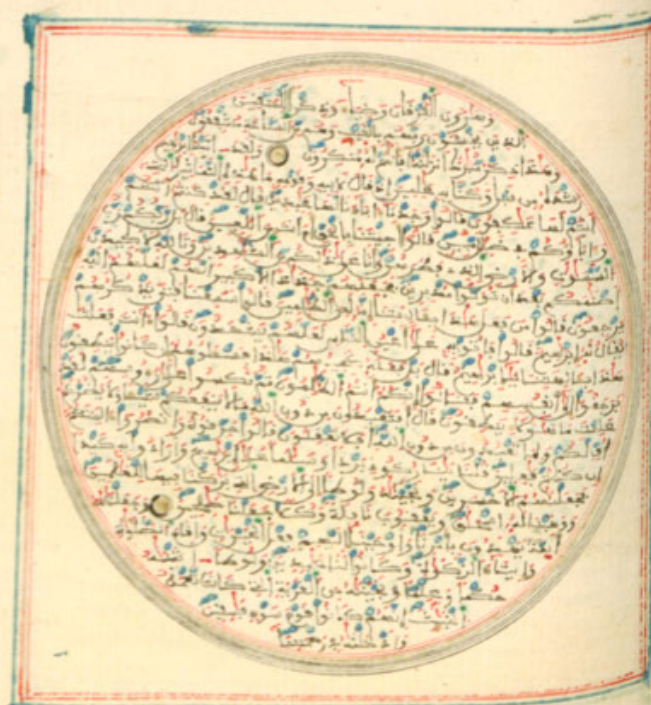 وهرون الفرقان وضياء وذكرا للمتقين
الذين يخشون ربهم بالغيب وهم من الساعة مشفقون
وهذا ذكر مبرك انزلنه افانتم له منكرون ولقد اتينا ابرهيم
رشده من قبل وكنا به علمين اذ قال لابيه وقومه ما هذه التماثيل التي
انتم لها عكفون قالوا وجدنا اباءنا لها عبدين قال لقد كنتم انتم
واباؤكم في ضلل مبين قالوا اجئتنا بالحق ام انت من اللعبين قال بل ربكم رب
السموت والارض الذي فطرهن وانا على ذلكم من الشهدين وتالله لاكيدن
اصنمكم بعد ان تولوا مدبرين فجعلهم جذذا الا كبيرا لهم لعلهم اليه
يرجعون قالوا من فعل هذا بالهتنا انه لمن الظلمين قالوا سمعنا فتى يذكرهم
يقال له ابرهيم قالوا فاتوا به على اعين الناس لعلهم يشهدون قالوا اانت فعلت
هذا بالهتنا يابرهيم قال بل فعله كبيرهم هذا فسلوهم ان كانوا ينطقون
فرجعوا الى انفسهم فقالوا انكم انتم الظلمون ثم نكسوا على رءوسهم لقد
علمت ما هؤلاء ينطقون قال افتعبدون من دون الله ما لا ينفعكم شيا ولا يضركم
اف لكم ولما تعبدون من دون الله افلا تعقلون قالوا حرقوه وانصروا الهتكم
ان كنتم فعلين قلنا ينار كوني بردا وسلما على ابرهيم وارادوا به كيدا
فجعلنهم الاخسرين ونجينه ولوطا الى الارض التي بركنا فيها للعلمين
ووهبنا له اسحق ويعقوب نافلة وكلا جعلنا صلحين وجعلنهم
ائمة يهدون بامرنا واوحينا اليهم فعل الخيرت واقام الصلوة
وايتاء الزكوة وكانوا لنا عبدين ولوطا اتينه
حكما وعلما ونجينه من القرية التي كانت تعمل
الخبئث انهم كانوا قوم سوء فسقين
وادخلنه في رحمتنا